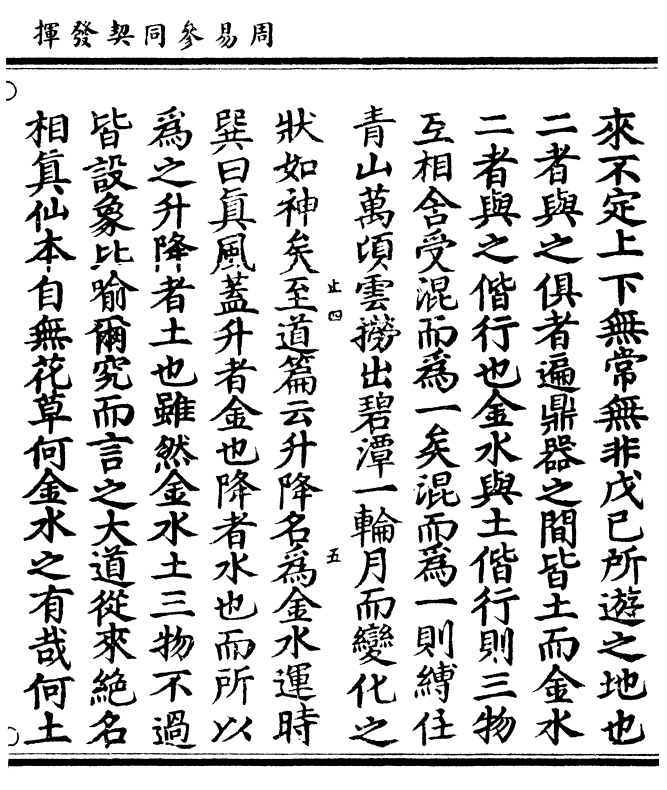 周易參同契發揮
來不定上下無常無非戊己所遊之地也
二者與之俱者遍鼎器之間皆土而金水
二者與之偕行也金水與土偕行則三物
互相含受混而為一矣混而為一則縛住
青山萬頃雲撈出碧潭一輪月而變化之
止四
五
狀如神矣至道篇云升降名為金水運時
巽曰真風蓋升者金也降者水也而所以
為之升降者土也雖然金水土三物不過
皆設象比喻爾究而言之大道從來絕名
相真仙本自無花草何金水之有哉何土